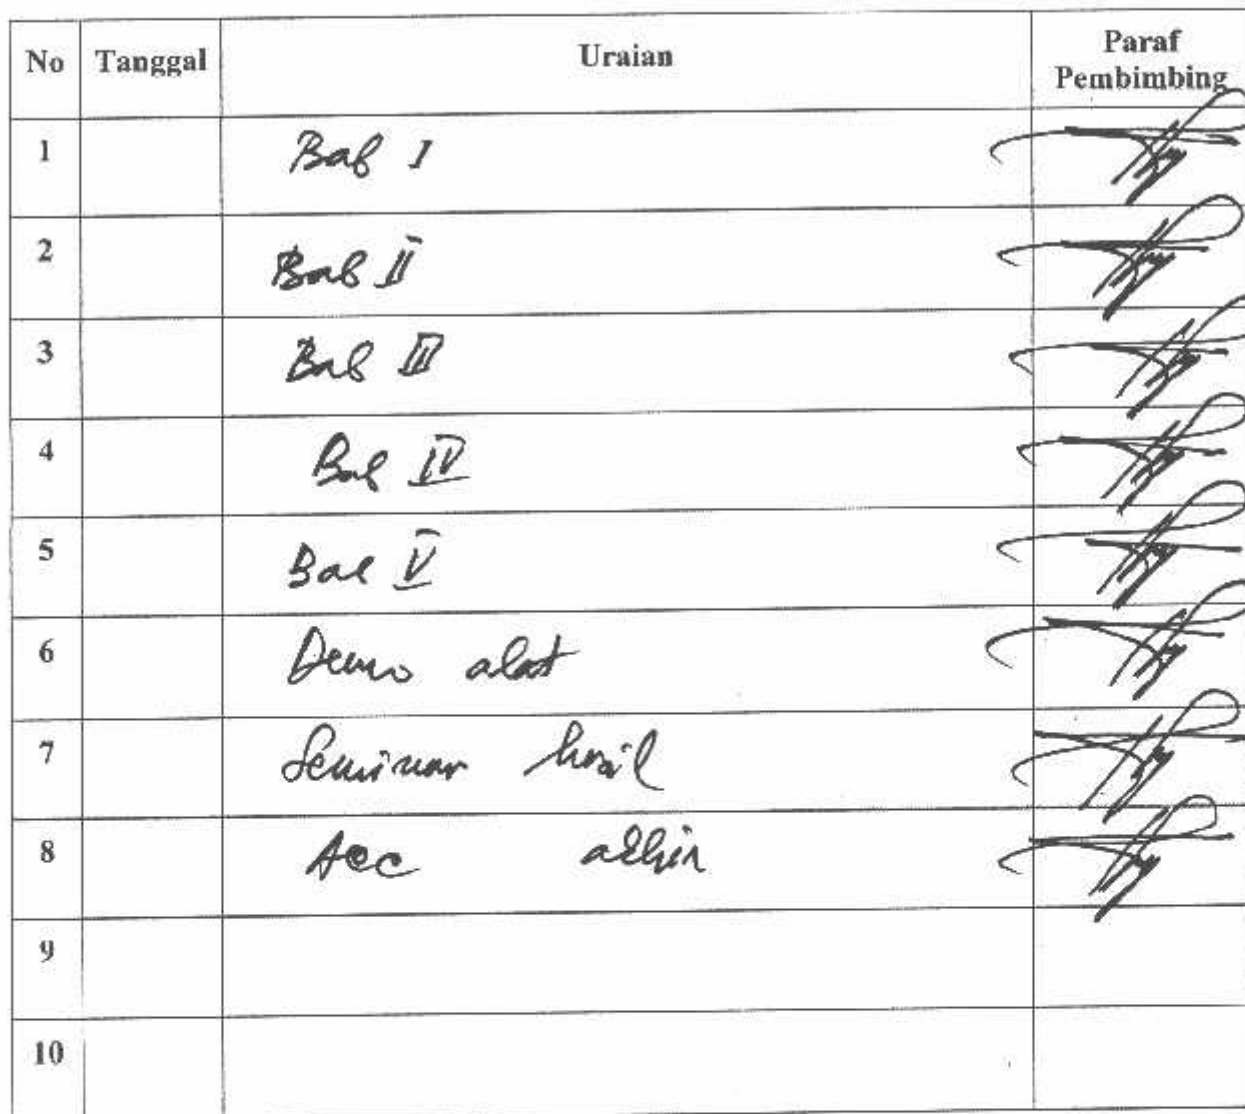 No Tanggal Uraian Paraf Pembimbing
1 Bab I
2 Bab II
3 Bab III
4 Bab IV
5 Bab V
6 Demo alat
7 Seminar hasil
8 Acc akhir
9
10